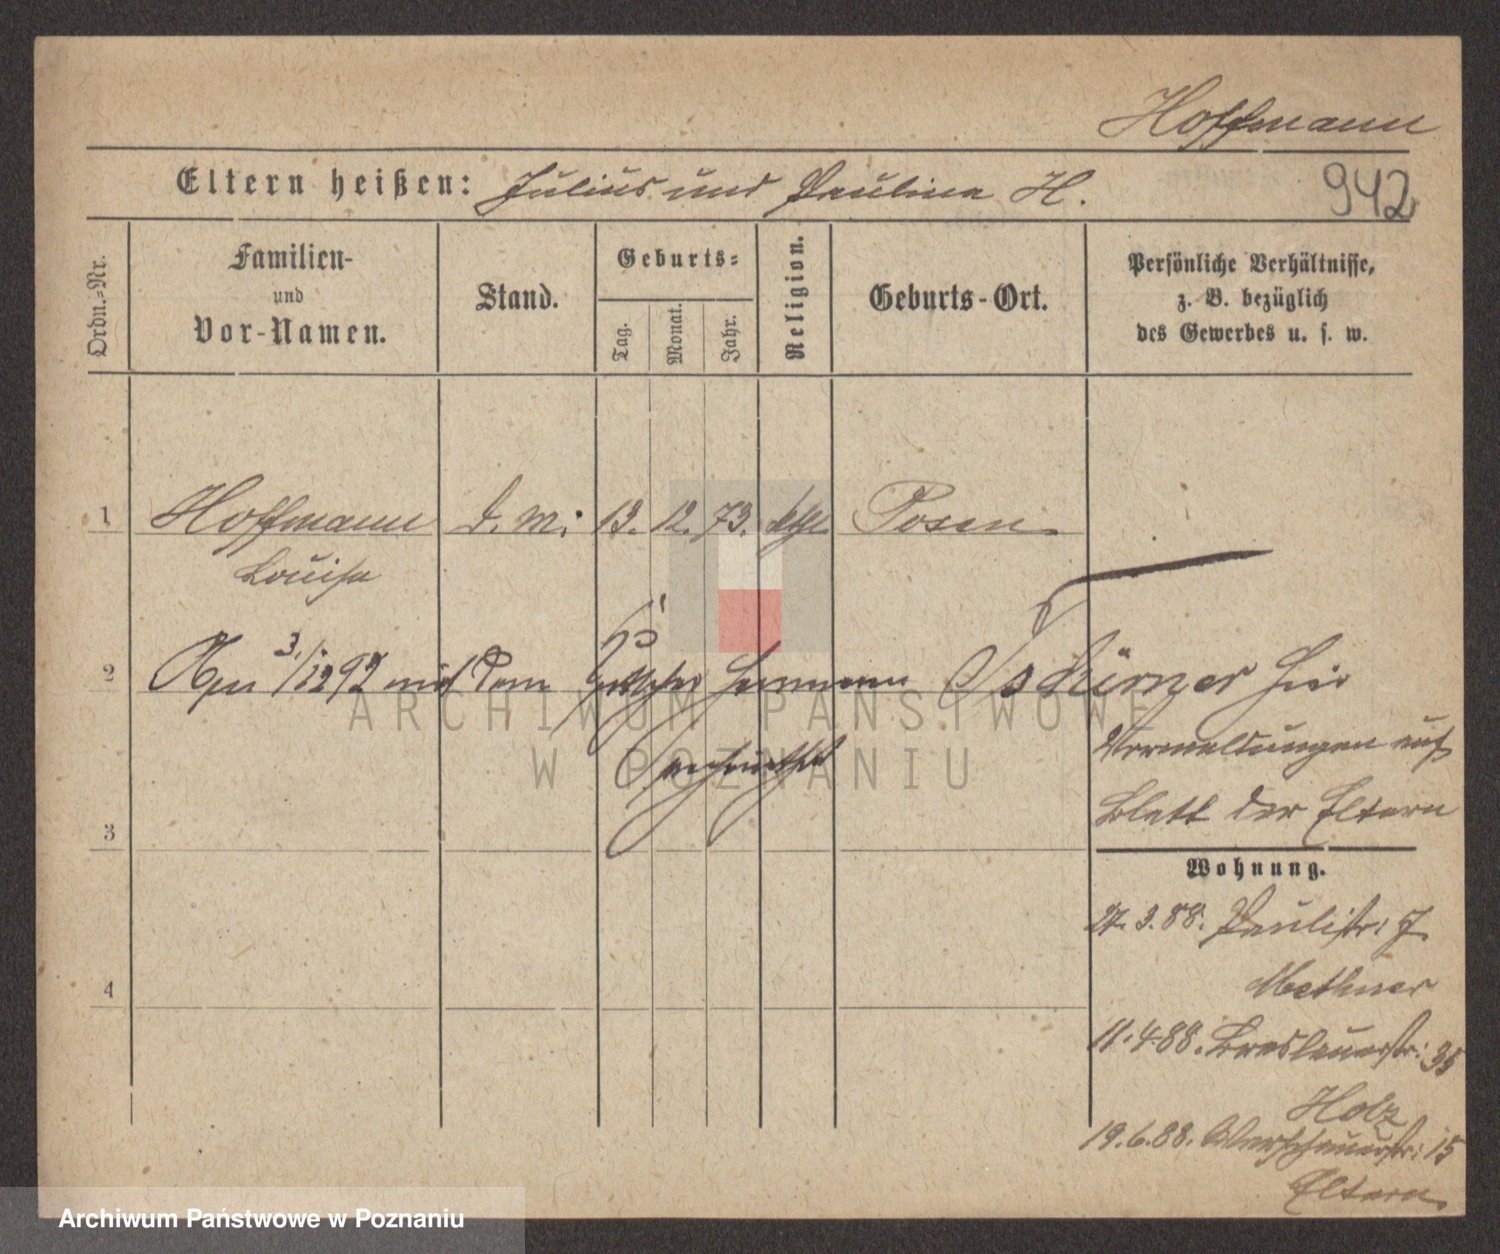 Hoffmann
Eltern heißen: Julius und Paulina H.
942
Ordn.-Nr.
Familien-
und
Vor-Namen.
Stand.
Geburts-
Tag.
Monat.
Jahr.
Religion.
Geburts-Ort.
Persönliche Verhältnisse,
z. B. bezüglich
des Gewerbes u. s. w.
1 Hoffmann d. M. 13. 12. 73. kath. Posen
Louise
2 3./12 92 mit dem Hermann Tschürner hier
verheirathet
Vermeldungen auf
Blatt der Eltern
3
Wohnung.
27.3.88. Paulistr: 7
Methner
4
11.4.88. Breslauerstr: 35
Holz
19.6.88. Wallischeistr: 15
Eltern
ARCHIWUM PAŃSTWOWE
W POZNANIU
Archiwum Państwowe w Poznaniu